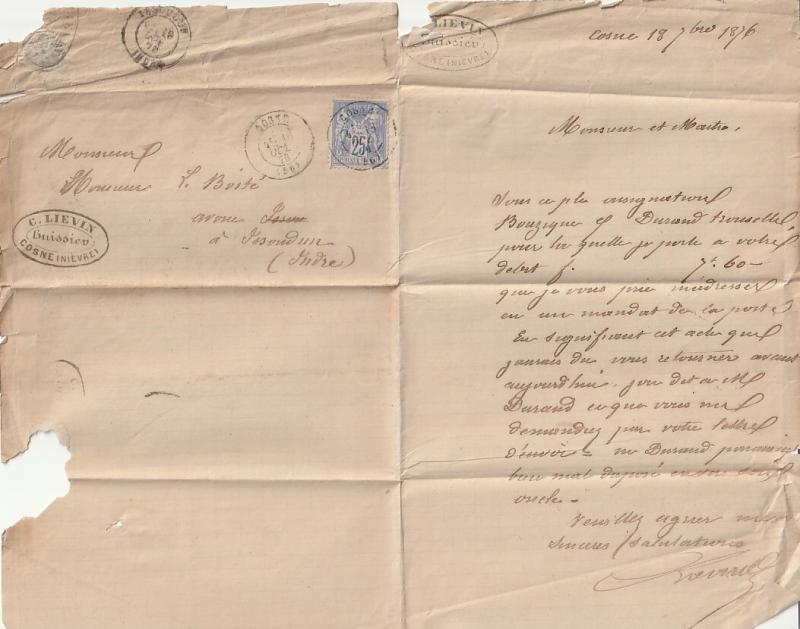 ISSOUDUN
INDRE
COSNE
(56)
COSNE
(56)
25
Monsieur
Monsieur L. Boité
avoué
à Issoudun
(Indre)
C. LIEVIN
Huissier
COSNE (NIÈVRE)
C. LIEVIN
Huissier
COSNE (NIÈVRE)
Cosne 18 7bre 1876
Monsieur et Maitre,
Sous ce pli assignation
Bouzique et Durand trouselle,
pour la quelle je porte a votre
debit f. 7f. 60 —
que je vous prie m'adresser
en un mandat de la poste
En signifiant cet acte que
j'aurais du vous retourner avant
aujourdhui, j'ai dit a M
Durand ce que vous me
demandez par votre lettre
d'envoi = M Durand parait
bien mal disposé envers son
oncle =
Veuillez agréer mes
sincères salutations
Lievin